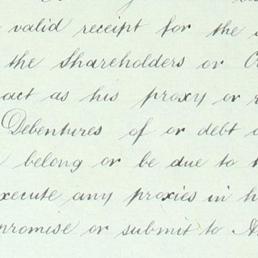 valid receipt for the
the Shareholders or
act as his proxy or
Debentures of or debt
belong or be due to
execute any proxies in
promise or submit to